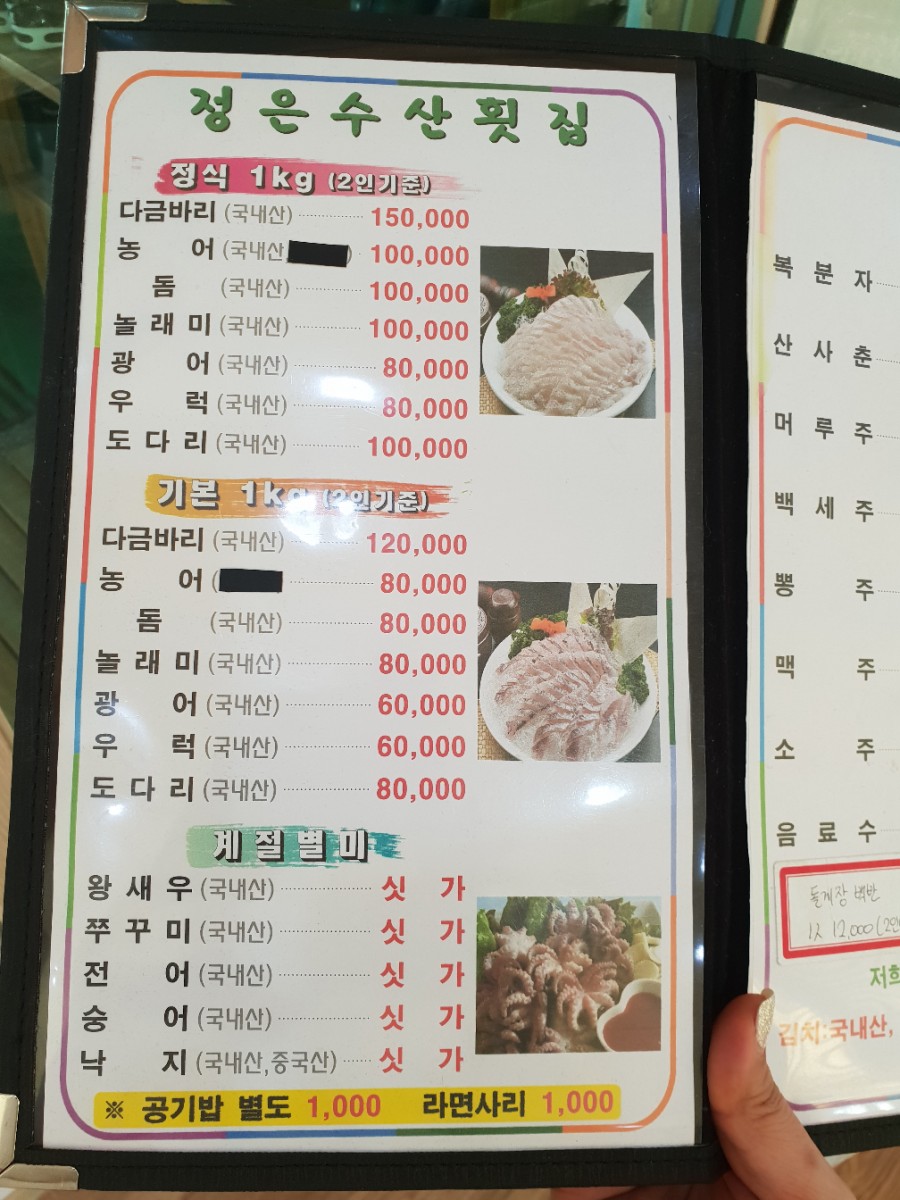 정은수산횟집
정식 1kg (2인기준)
다금바리 (국내산) 150,000
농어 (국내산 ) 100,000
돔 (국내산) 100,000
놀래미 (국내산) 100,000
광어 (국내산) 80,000
우럭 (국내산) 80,000
도다리 (국내산) 100,000
기본 1kg (2인기준)
다금바리 (국내산) 120,000
농어 ( 80,000
돔 (국내산) 80,000
놀래미 (국내산) 80,000
광어 (국내산) 60,000
우럭 (국내산) 60,000
도다리 (국내산) 80,000
계절별미
왕새우 (국내산) 싯가
쭈꾸미 (국내산) 싯가
전어 (국내산) 싯가
숭어 (국내산) 싯가
낙지 (국내산,중국산) 싯가
※ 공기밥 별도 1,000 라면사리 1,000
복분자
산사춘
머루주
백세주
뽕주
맥주
소주
음료수
돌게장 백반
12,000 (2인
저희
김치:국내산,